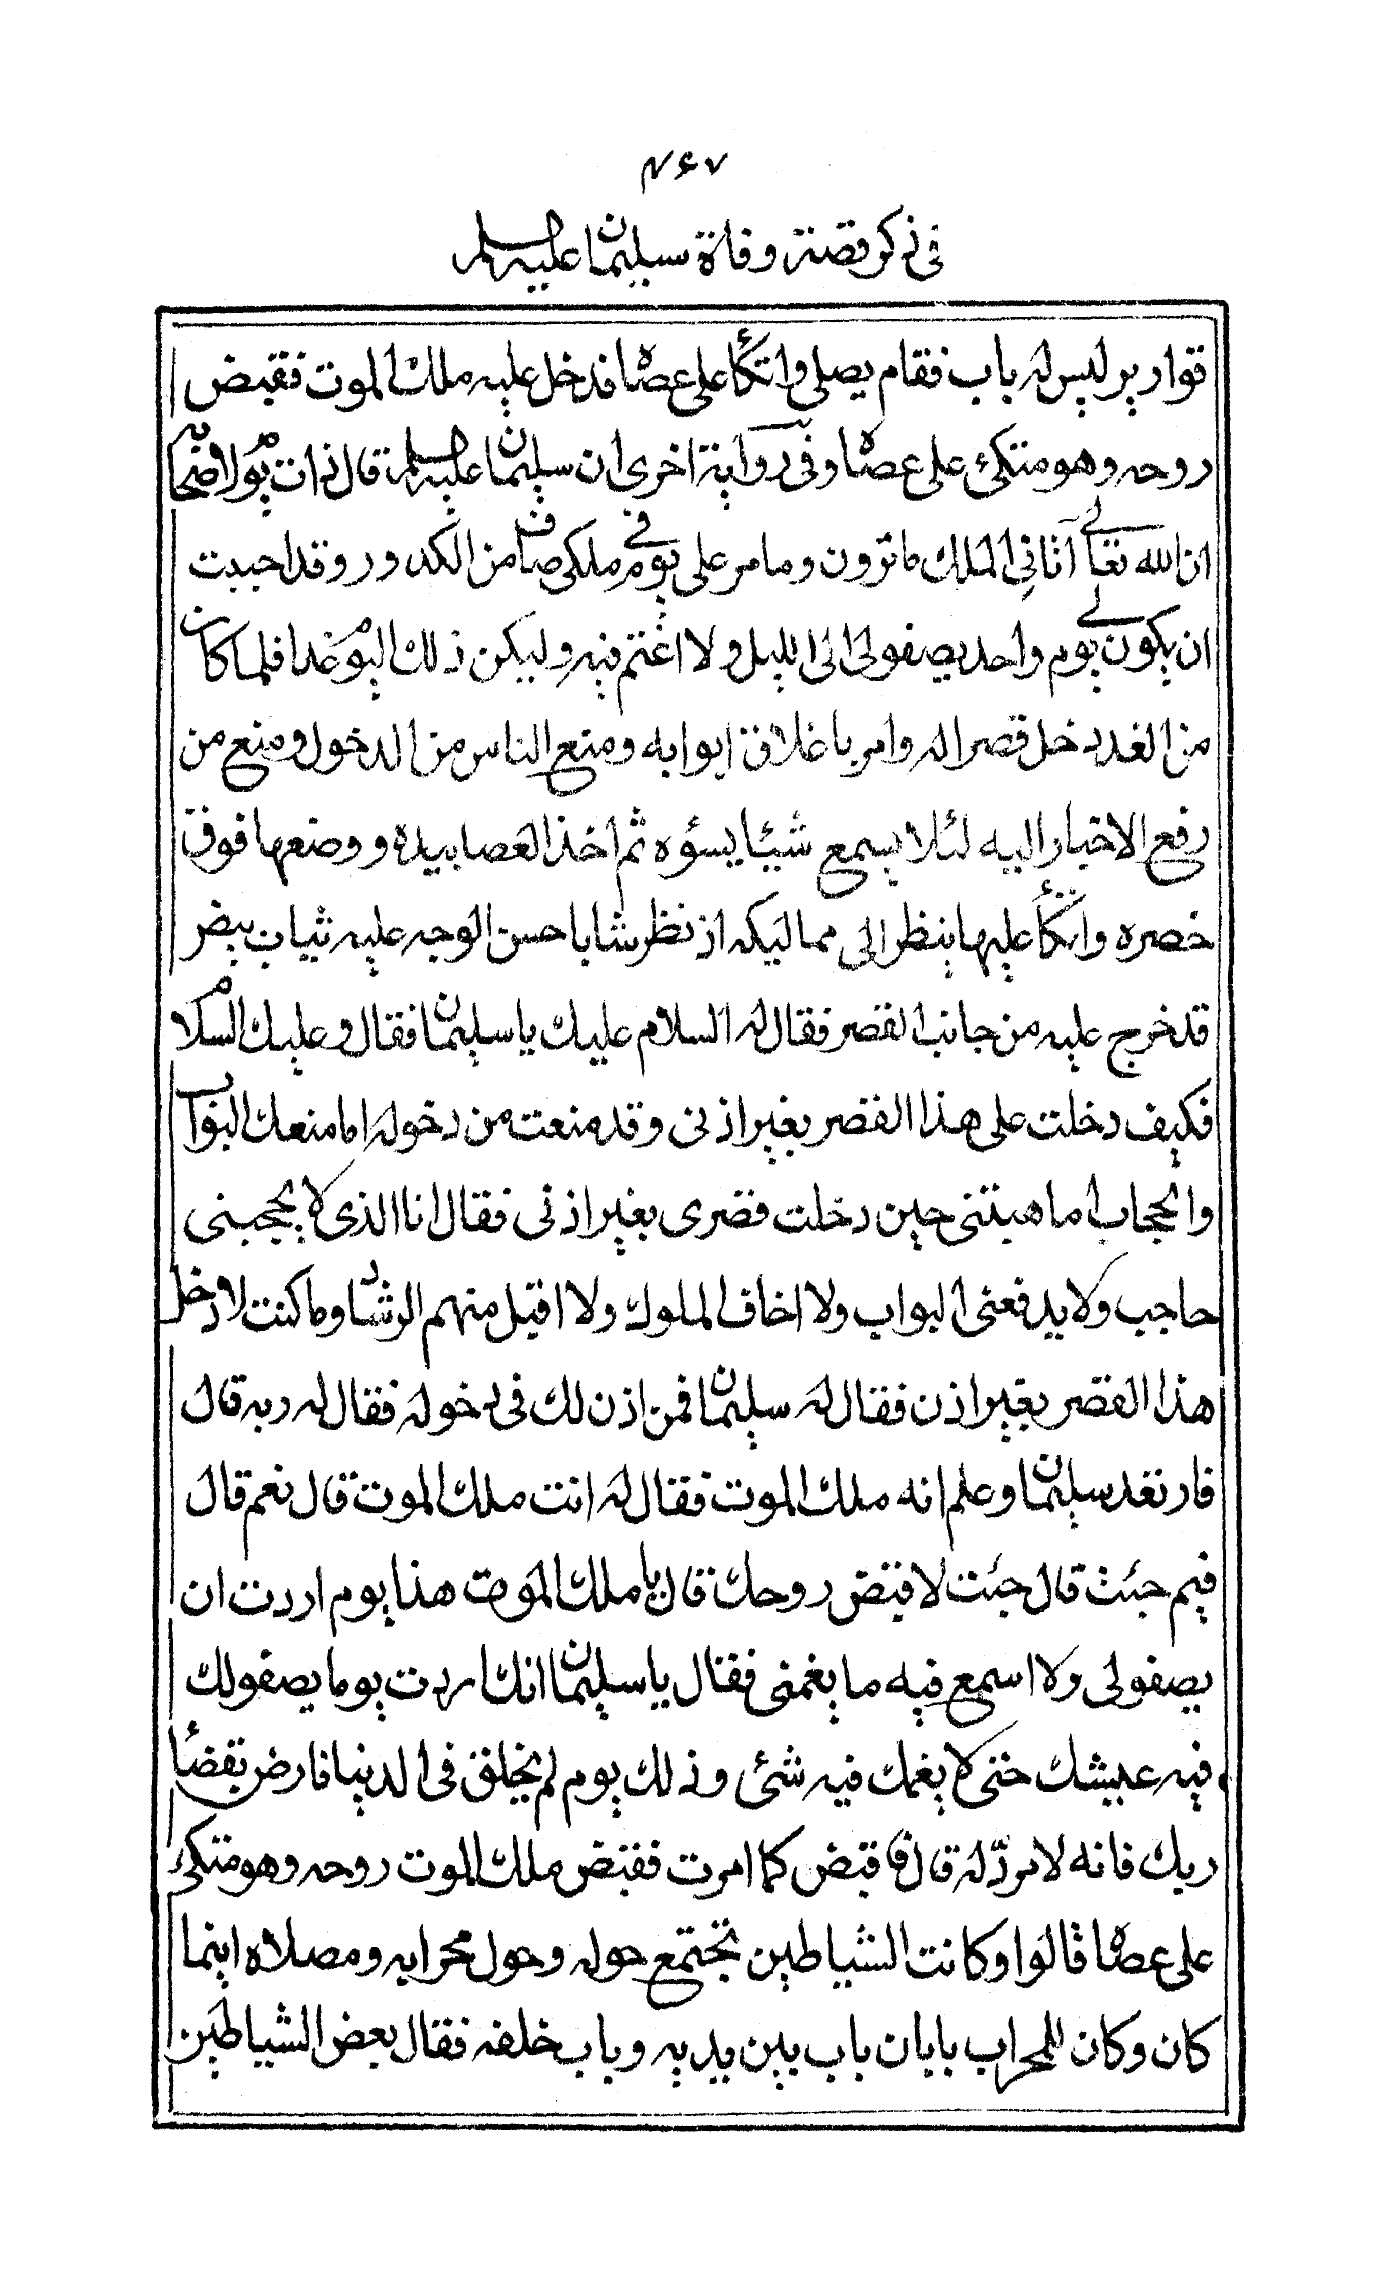 ٧٤٧
في ذكر قصة وفاة سليمان عليه السلام
قوارير ليس له باب فقام يصلي واتكأ على عصاه فدخل عليه ملك الموت فقبض
روحه وهو متكئ على عصاه وفي رواية اخرى ان سليمان عليه السلام قال ذات يوم لاصحابه
ان الله تعالى آتاني الملك ما ترون وما مر علي يوم في ملكي صاف من الكدور وقد احببت
ان يكون لي يوم واحد يصفو لي الى الليل ولا اغتم فيه وليكن ذلك اليوم غدا فلما كان
من الغد دخل قصرا له وامر باغلاق ابوابه ومنع الناس من الدخول ومنع من
رفع الاخبار اليه لئلا يسمع شيئا يسؤه ثم اخذ العصا بيده ووضعها فوق
خصره واتكأ عليها ينظر الى مماليكه اذ نظر شابا حسن الوجه عليه ثياب بيض
قد خرج عليه من جانب القصر فقال له السلام عليك يا سليمان فقال وعليك السلام
فكيف دخلت على هذا القصر بغير اذني وقد منعت من دخوله اما منعك البواب
والحجاب اما هبتني حين دخلت قصري بغير اذني فقال انا الذي لا يحجبني
حاجب ولا يدفعني البواب ولا اخاف الملوك ولا اقبل منهم الرشا وما كنت لادخل
هذا القصر بغير اذن فقال له سليمان فمن اذن لك في دخوله فقال له ربه قال
فارتعد سليمان وعلم انه ملك الموت فقال له انت ملك الموت قال نعم قال
فيم جئت قال جئت لاقبض روحك قال يا ملك الموت هذا يوم اردت ان
يصفو لي ولا اسمع فيه ما يغمني فقال يا سليمان انك اردت يوما يصفو لك
فيه عيشك حتى لا يغمك فيه شئ وذلك يوم لم يخلق في الدنيا فارض بقضاء
ربك فانه لا مردّ له قال فاقبض كما امرت فقبض ملك الموت روحه وهو متكئ
على عصاه قالوا وكانت الشياطين تجتمع حوله وحول محرابه ومصلاه اينما
كان وكان للمحراب بابان باب بين يديه وباب خلفه فقال بعض الشياطين